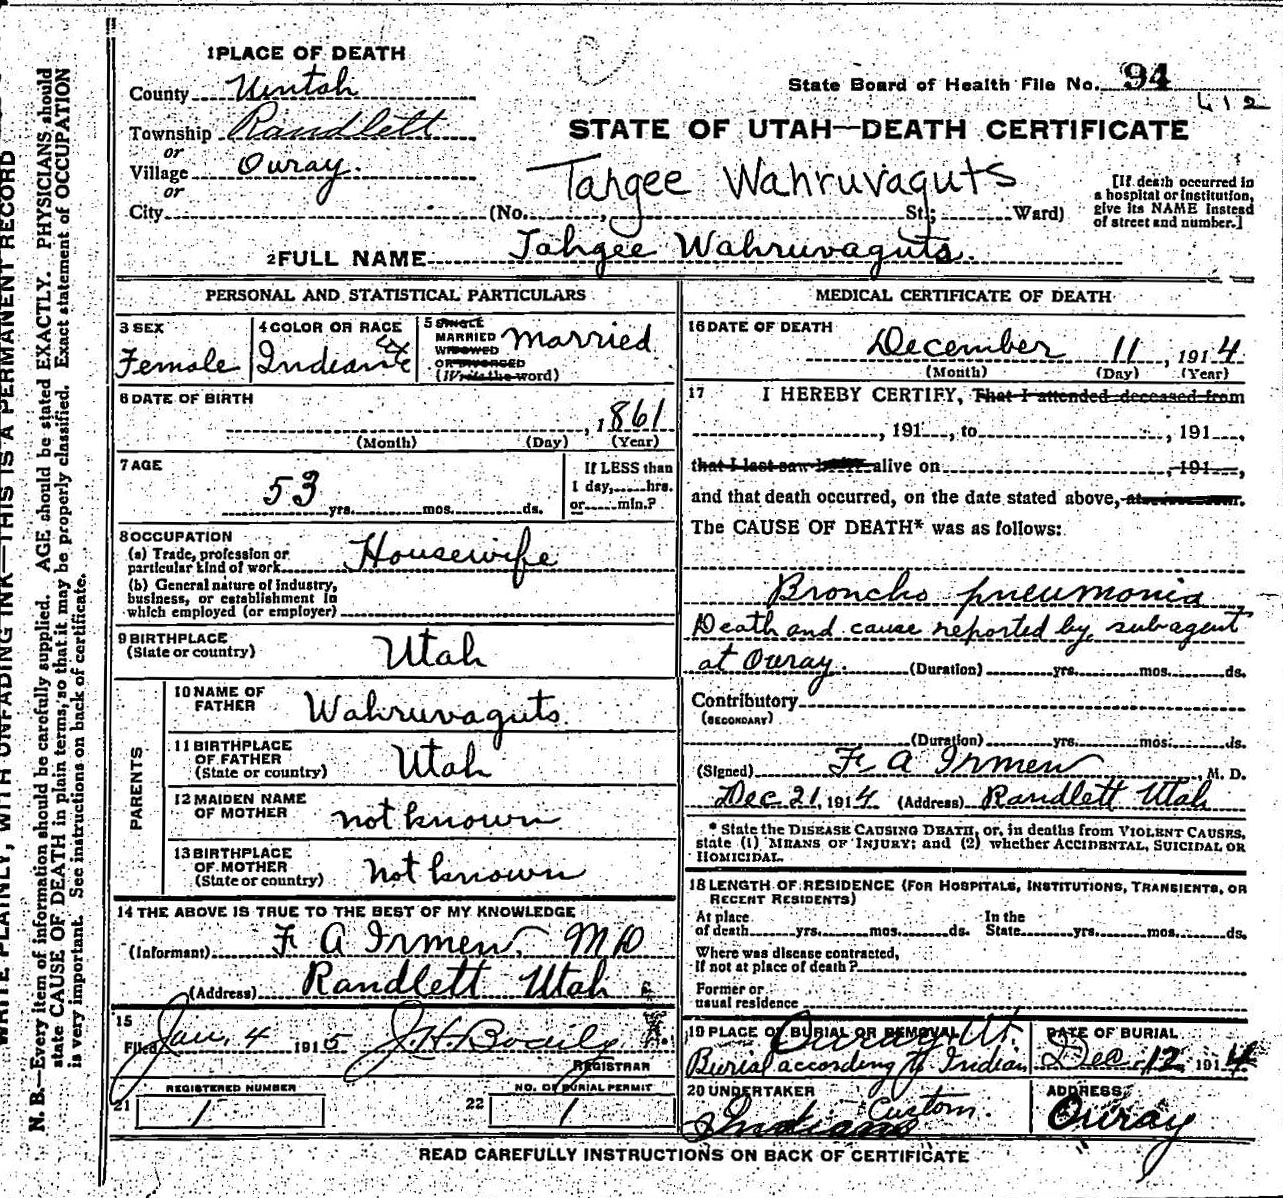 1 PLACE OF DEATH
County Uintah
Township Randlett
or
Village Ouray.
or
City (No. , St; Ward)
State Board of Health File No. 94
412
STATE OF UTAH—DEATH CERTIFICATE
Tahgee Wahruvaguts
[If death occurred in
a hospital or institution,
give its NAME instead
of street and number.]
2 FULL NAME Tahgee Wahruvaguts.
PERSONAL AND STATISTICAL PARTICULARS
3 SEX
Female
4 COLOR OR RACE
Indian Ute
5 SINGLE
MARRIED
WIDOWED
OR DIVORCED
(Write the word)
married
6 DATE OF BIRTH
, 1861
(Month) (Day) (Year)
7 AGE
53 yrs. mos. ds.
If LESS than
1 day, hrs.
or min.?
8 OCCUPATION
(a) Trade, profession or
particular kind of work Housewife
(b) General nature of industry,
business, or establishment in
which employed (or employer)
9 BIRTHPLACE
(State or country) Utah
PARENTS
10 NAME OF
FATHER Wahruvaguts.
11 BIRTHPLACE
OF FATHER
(State or country) Utah
12 MAIDEN NAME
OF MOTHER not known
13 BIRTHPLACE
OF MOTHER
(State or country) Not known
14 THE ABOVE IS TRUE TO THE BEST OF MY KNOWLEDGE
(Informant) F A Irmen, MD
(Address) Randlett Utah
15
Filed Jan. 4 1915 J.H. Bodily
REGISTRAR
REGISTERED NUMBER
21 1
NO. OF BURIAL PERMIT
22 1
MEDICAL CERTIFICATE OF DEATH
16 DATE OF DEATH
December 11, 1914
(Month) (Day) (Year)
17 I HEREBY CERTIFY, That I attended deceased from
, 191 , to , 191 ,
that I last saw alive on , 191 ,
and that death occurred, on the date stated above, at
The CAUSE OF DEATH* was as follows:
Broncho pneumonia
Death and cause reported by sub agent
at Ouray. (Duration) yrs. mos. ds.
Contributory
(SECONDARY)
(Duration) yrs. mos. ds.
(Signed) F A Irmen, M. D.
Dec. 21, 1914 (Address) Randlett Utah
* State the DISEASE CAUSING DEATH, or, in deaths from VIOLENT CAUSES,
state (1) MEANS OF INJURY; and (2) whether ACCIDENTAL, SUICIDAL OR
HOMICIDAL.
18 LENGTH OF RESIDENCE (FOR HOSPITALS, INSTITUTIONS, TRANSIENTS, OR
RECENT RESIDENTS)
At place
of death yrs. mos. ds.
In the
State yrs. mos. ds.
Where was disease contracted,
if not at place of death?
Former or
usual residence
19 PLACE OF BURIAL OR REMOVAL
Ouray Ut.
Burial according to Indian
Custom.
DATE OF BURIAL
Dec. 12, 1914
20 UNDERTAKER
Indians
ADDRESS
Ouray
READ CAREFULLY INSTRUCTIONS ON BACK OF CERTIFICATE
WRITE PLAINLY, WITH UNFADING INK—THIS IS A PERMANENT RECORD
N. B.—Every item of information should be carefully supplied. AGE should be stated EXACTLY. PHYSICIANS should
state CAUSE OF DEATH in plain terms, so that it may be properly classified. Exact statement of OCCUPATION
is very important. See instructions on back of certificate.